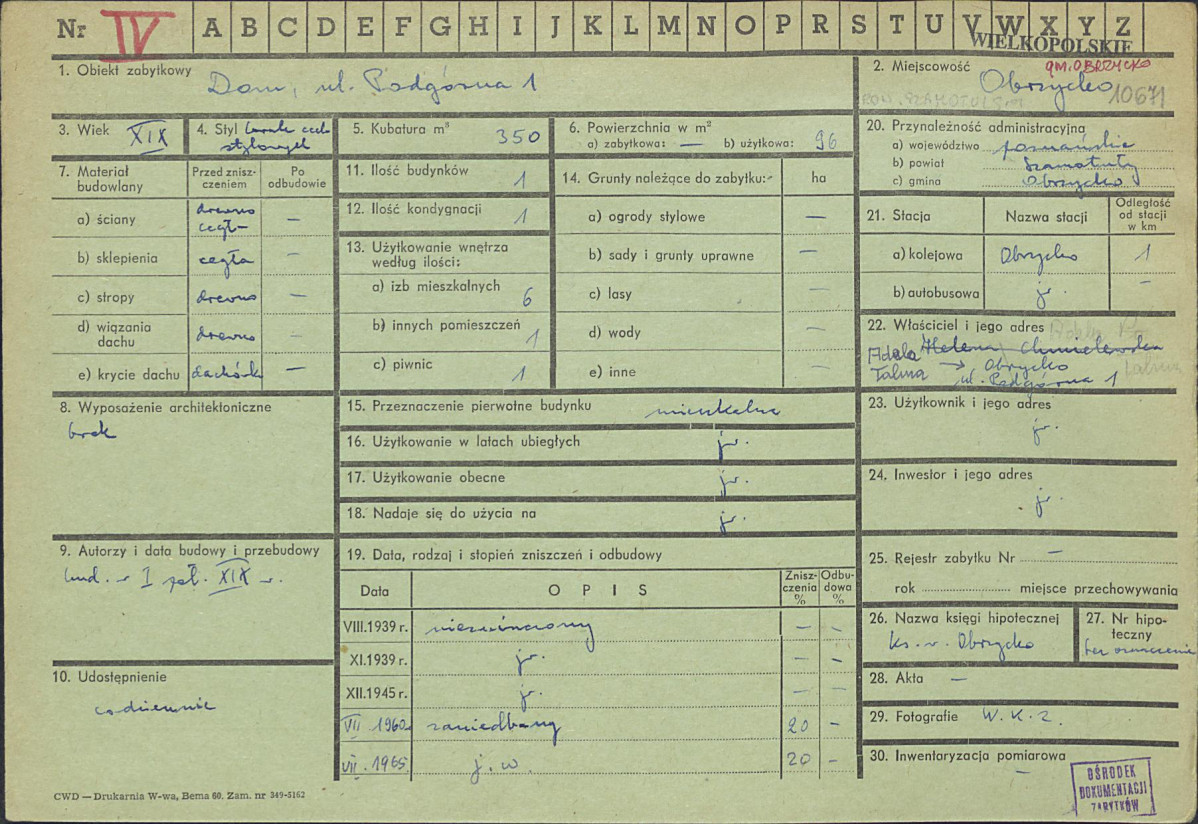 Nr IV A B C D E F G H I J K L M N O P R S T U V W X Y Z
WIELKOPOLSKIE
1. Obiekt zabytkowy
Dom, ul. Podgórna 1
2. Miejscowość gm. OBRZYCKO
Obrzycko 10671
POW. SZAMOTULSKI
3. Wiek XIX
4. Styl brak cech
stylowych
5. Kubatura m³ 350
6. Powierzchnia w m²
a) zabytkowa: — b) użytkowa: 96
7. Materiał budowlany
Przed znisz-
czeniem
Po
odbudowie
a) ściany drewno cegła —
b) sklepienia cegła —
c) stropy drewno —
d) wiązania dachu drewno —
e) krycie dachu dachówka —
8. Wyposażenie architektoniczne
brak
9. Autorzy i data budowy i przebudowy
bud. w I poł. XIX w.
10. Udostępnienie
codziennie
11. Ilość budynków 1
12. Ilość kondygnacji 1
13. Użytkowanie wnętrza
według ilości:
a) izb mieszkalnych 6
b) innych pomieszczeń 1
c) piwnic 1
14. Grunty należące do zabytku: ha
a) ogrody stylowe —
b) sady i grunty uprawne —
c) lasy —
d) wody —
e) inne —
15. Przeznaczenie pierwotne budynku mieszkalne
16. Użytkowanie w latach ubiegłych jw.
17. Użytkowanie obecne jw.
18. Nadaje się do użycia na jw.
19. Data, rodzaj i stopień zniszczeń i odbudowy
Data
O P I S
Znisz-
czenia
%
Odbu-
dowa
%
VIII.1939 r. niezniszczony — —
XI.1939 r. jw. — —
XII.1945 r. jw. — —
VII 1960 zaniedbany 20 —
VII. 1965 j.w. 20 —
20. Przynależność administracyjna
a) województwo poznańskie
b) powiat Szamotuły
c) gmina Obrzycko
21. Stacja
Nazwa stacji
Odległość
od stacji
w km
a) kolejowa Obrzycko 1
b) autobusowa jw. —
22. Właściciel i jego adres
Helena Chmielewska
Adela
Obrzycko
ul. Podgórna 1
23. Użytkownik i jego adres
jw.
24. Inwestor i jego adres
jw.
25. Rejestr zabytku Nr —
rok miejsce przechowywania
26. Nazwa księgi hipotecznej
ks. w. Obrzycko
27. Nr hipo-
teczny
bez oznaczenia
28. Akta —
29. Fotografie W. K. Z.
30. Inwentaryzacja pomiarowa
—
OŚRODEK
DOKUMENTACJI
ZABYTKÓW
CWD — Drukarnia W-wa, Bema 60. Zam. nr 349-5162